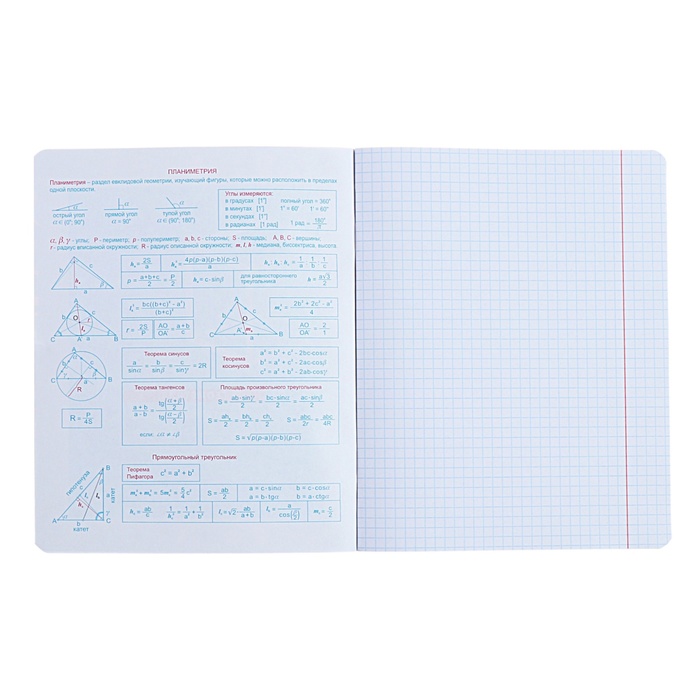 ПЛАНИМЕТРИЯ
Планиметрия – раздел евклидовой геометрии, изучающий фигуры, которые можно расположить в пределах
одной плоскости.
острый угол прямой угол тупой угол
α ∈ (0°; 90°) α = 90° α ∈ (90°; 180°)
Углы измеряются:
в градусах [1°] полный угол = 360°
в минутах [1'] 1° = 60' 1' = 60"
в секундах [1"]
в радианах [1 рад] 1 рад = 180°/π
α, β, γ - углы; P - периметр; p - полупериметр; a, b, c - стороны; S - площадь; A, B, C - вершины;
r - радиус вписанной окружности; R - радиус описанной окружности; m, l, h - медиана, биссектриса, высота.
hₐ = 2S/a hₐ² = 4p(p-a)(p-b)(p-c)/a² hₐ : h_b : h_c = 1/a : 1/b : 1/c
p = (a+b+c)/2 = P/2 hₐ = c·sinβ для равностороннего треугольника h = a√3/2
lₐ² = bc((b+c)² - a²)/(b+c)² mₐ² = (2b² + 2c² - a²)/4
r = 2S/P AO/OA' = (a+b)/c AO/OA' = 2/1
Теорема синусов
a/sinα = b/sinβ = c/sinγ = 2R
Теорема косинусов
a² = b² + c² - 2bc·cosα
b² = a² + c² - 2ac·cosβ
c² = a² + b² - 2ab·cosγ
R = P/4S
Теорема тангенсов
(a + b)/(a - b) = tg((α + β)/2)/tg((α - β)/2)
если: ∠α ≠ ∠β
Площадь произвольного треугольника
S = ab·sinγ/2 = bc·sinα/2 = ac·sinβ/2
S = ahₐ/2 = bh_b/2 = ch_c/2 S = abc/2r = abc/4R
S = √p(p-a)(p-b)(p-c)
Прямоугольный треугольник
гипотенуза
катет
катет
Теорема Пифагора c² = a² + b²
mₐ² + m_b² = 5m_c² = 5/4 c² S = ab/2
a = c·sinα b = c·cosα
a = b·tgα b = a·ctgα
h_c = ab/c 1/h_c² = 1/a² + 1/b² l_c = √2·ab/(a+b) m_c = c/2